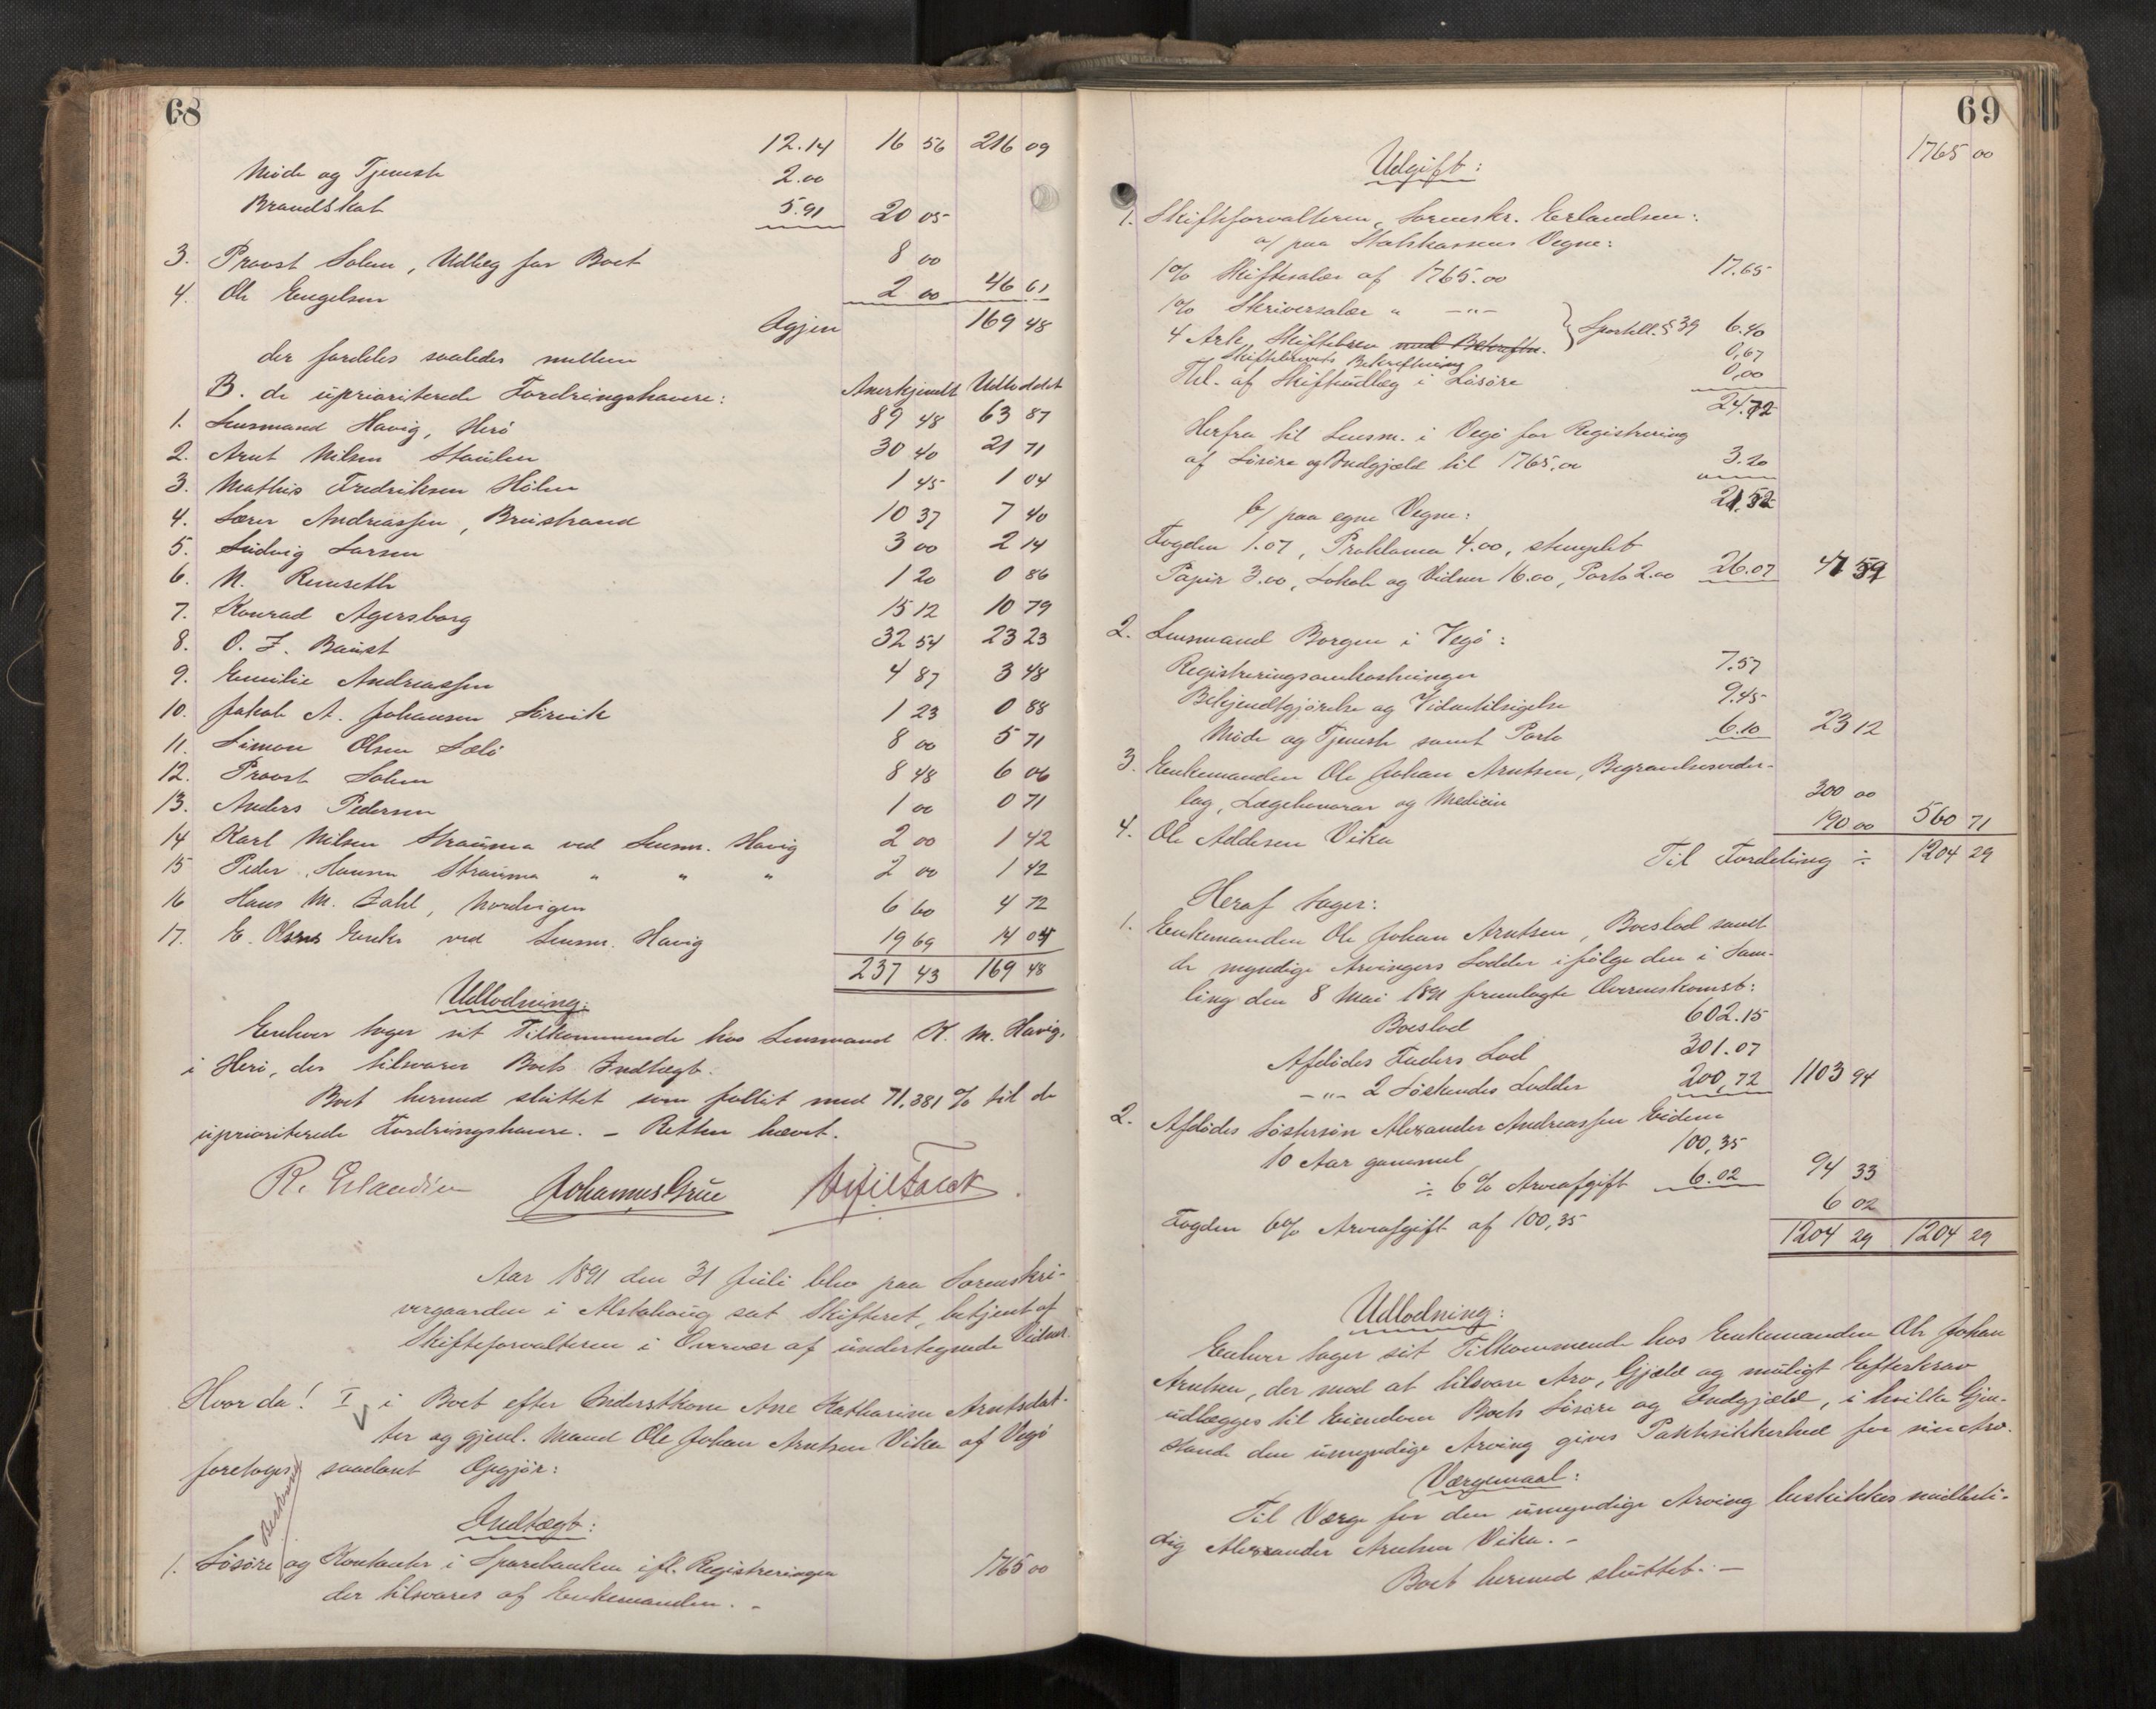 68
12.14 16 56 216 09
Møde og Tjeneste 2.00
Brandskat 5.91 20 05
3. Provst Solem, Udlæg for Boet 8 00
4. Ole Engelsen 2 00 46 61
Igjen 169 48
der fordeles saaledes mellem
B. de uprioriterede Fordringshavere: Anerkjendt Udloddet
1. Lensmand Havig, Herö 89 48 63 87
2. Arnt Nilsen Staulen 30 40 21 71
3. Mathis Fredriksen Hölen 1 45 1 04
4. Sører Andreassen, Breistrand 10 37 7 40
5. Ludvig Larsen 3 00 2 14
6. N. Remseth 1 20 0 86
7. Konrad Agersborg 15 12 10 79
8. O. F. Baust 32 54 23 23
9. Emilie Andreassen 4 87 3 48
10. Jakob A. Johansen Sörvik 1 23 0 88
11. Simon Olsen Sælö 8 00 5 71
12. Provst Solem 8 48 6 06
13. Anders Pedersen 1 00 0 71
14 Karl Nilsen Strauma ved Lensm. Havig 2 00 1 42
15 Peder Hansen Strauma " " " 2 00 1 42
16 Hans M. Zahl, Nordvigen 6 60 4 72
17. E. Olsens Enke ved Lensm. Havig 19 69 14 04
237 43 169 48
Udlodning:
Enhver tager sit Tilkommende hos Lensmand K. M. Havig,
i Herö, der tilsvarer Boets Indtægt.
Boet hermed sluttet som fallit med 71,381 % til de
uprioriterede Fordringshavere. – Retten hævet.
R. Erlandsen Johannes Grue
Aar 1891 den 31 Juli blev paa Sorenskri-
vergaarden i Alstahaug sat Skifteret, betjent af
Skifteforvalteren i Overvær af undertegnede Vidner.
Hvor da! I i Boet efter Inderstkone Ane Katharina Arntsdat-
ter og gjenl. Mand Ole Johan Arntsen Vika af Vegö
foretoges saadant Opgjör:
Indtægt:
1. Lösöre og Kontanter i Sparebanken ifl. Registreringen 1765 00
der tilsvares af Enkemanden. –
69
1765 00
Udgift:
1. Skifteforvalteren, Sorenskr. Erlandsen:
a/ paa Statskassens Vegne:
1% Skiftesalær af 1765.00 17.65
1% Skriversalær " –"–
4 Ark Skiftebrev med Bekræftn. } Sportell. § 39 6.40
Skiftebrevets Bekræftning 0,67
Thl. af Skifteudlæg i Lösöre 0,00
24.72
Herfra til Lensm. i Vegö for Registrering
af Lösöre og Indgjæld til 1765.00 3.20
21,52
b/ paa egne Vegne:
Fogden 1.07, Proklama 4.00, stemplet
Papir 3.00, Lokale og Vidner 16.00, Porto 2.00 26.07 47 59
2. Lensmand Borgen i Vegö:
Registreringsomkostninger 7.57
Bekjendtgjörelse og Vidnetilsigelse 9.45
Møde og Tjeneste samt Porto 6.10 23 12
3. Enkemanden Ole Johan Arntsen, Begravelsesveder-
lag, Lægehonorar og Medicin 300 00
4. Ole Addesen Vika 190 00 560 71
Til Fordeling ÷ 1204 29
Heraf tager:
1. Enkemanden Ole Johan Arntsen, Boeslod samt
de myndige Arvingers Lodder ifölge den i Sam-
ling den 8 Mai 1891 fremlagte Overenskomst:
Boeslod 602.15
Afdödes Faders Lod 301.07
–"– 2 Söskendes Lodder 200,72 1103 94
2. Afdödes Söstersön Alexander Andreassen Eidem
10 Aar gammel 100,35
÷ 6% Arveafgift 6.02 94 33
Fogden 6% Arveafgift af 100,35 6 02
1204 29 1204 29
Udlodning:
Enhver tager sit Tilkommende hos Enkemanden Ole Johan
Arntsen, der mod at tilsvare Arv, Gjæld og muligt Efterkrav
udlægges til Eiendom Boets Lösöre og Indgjæld, i hvilke Gjen-
stande den umyndige Arving gives Pantesikkerhed for sin Arv.
Værgemaal:
Til Værge for den umyndige Arving beskikkes midlerti-
dig Alexander Arntsen Vika. –
Boet hermed sluttet. –